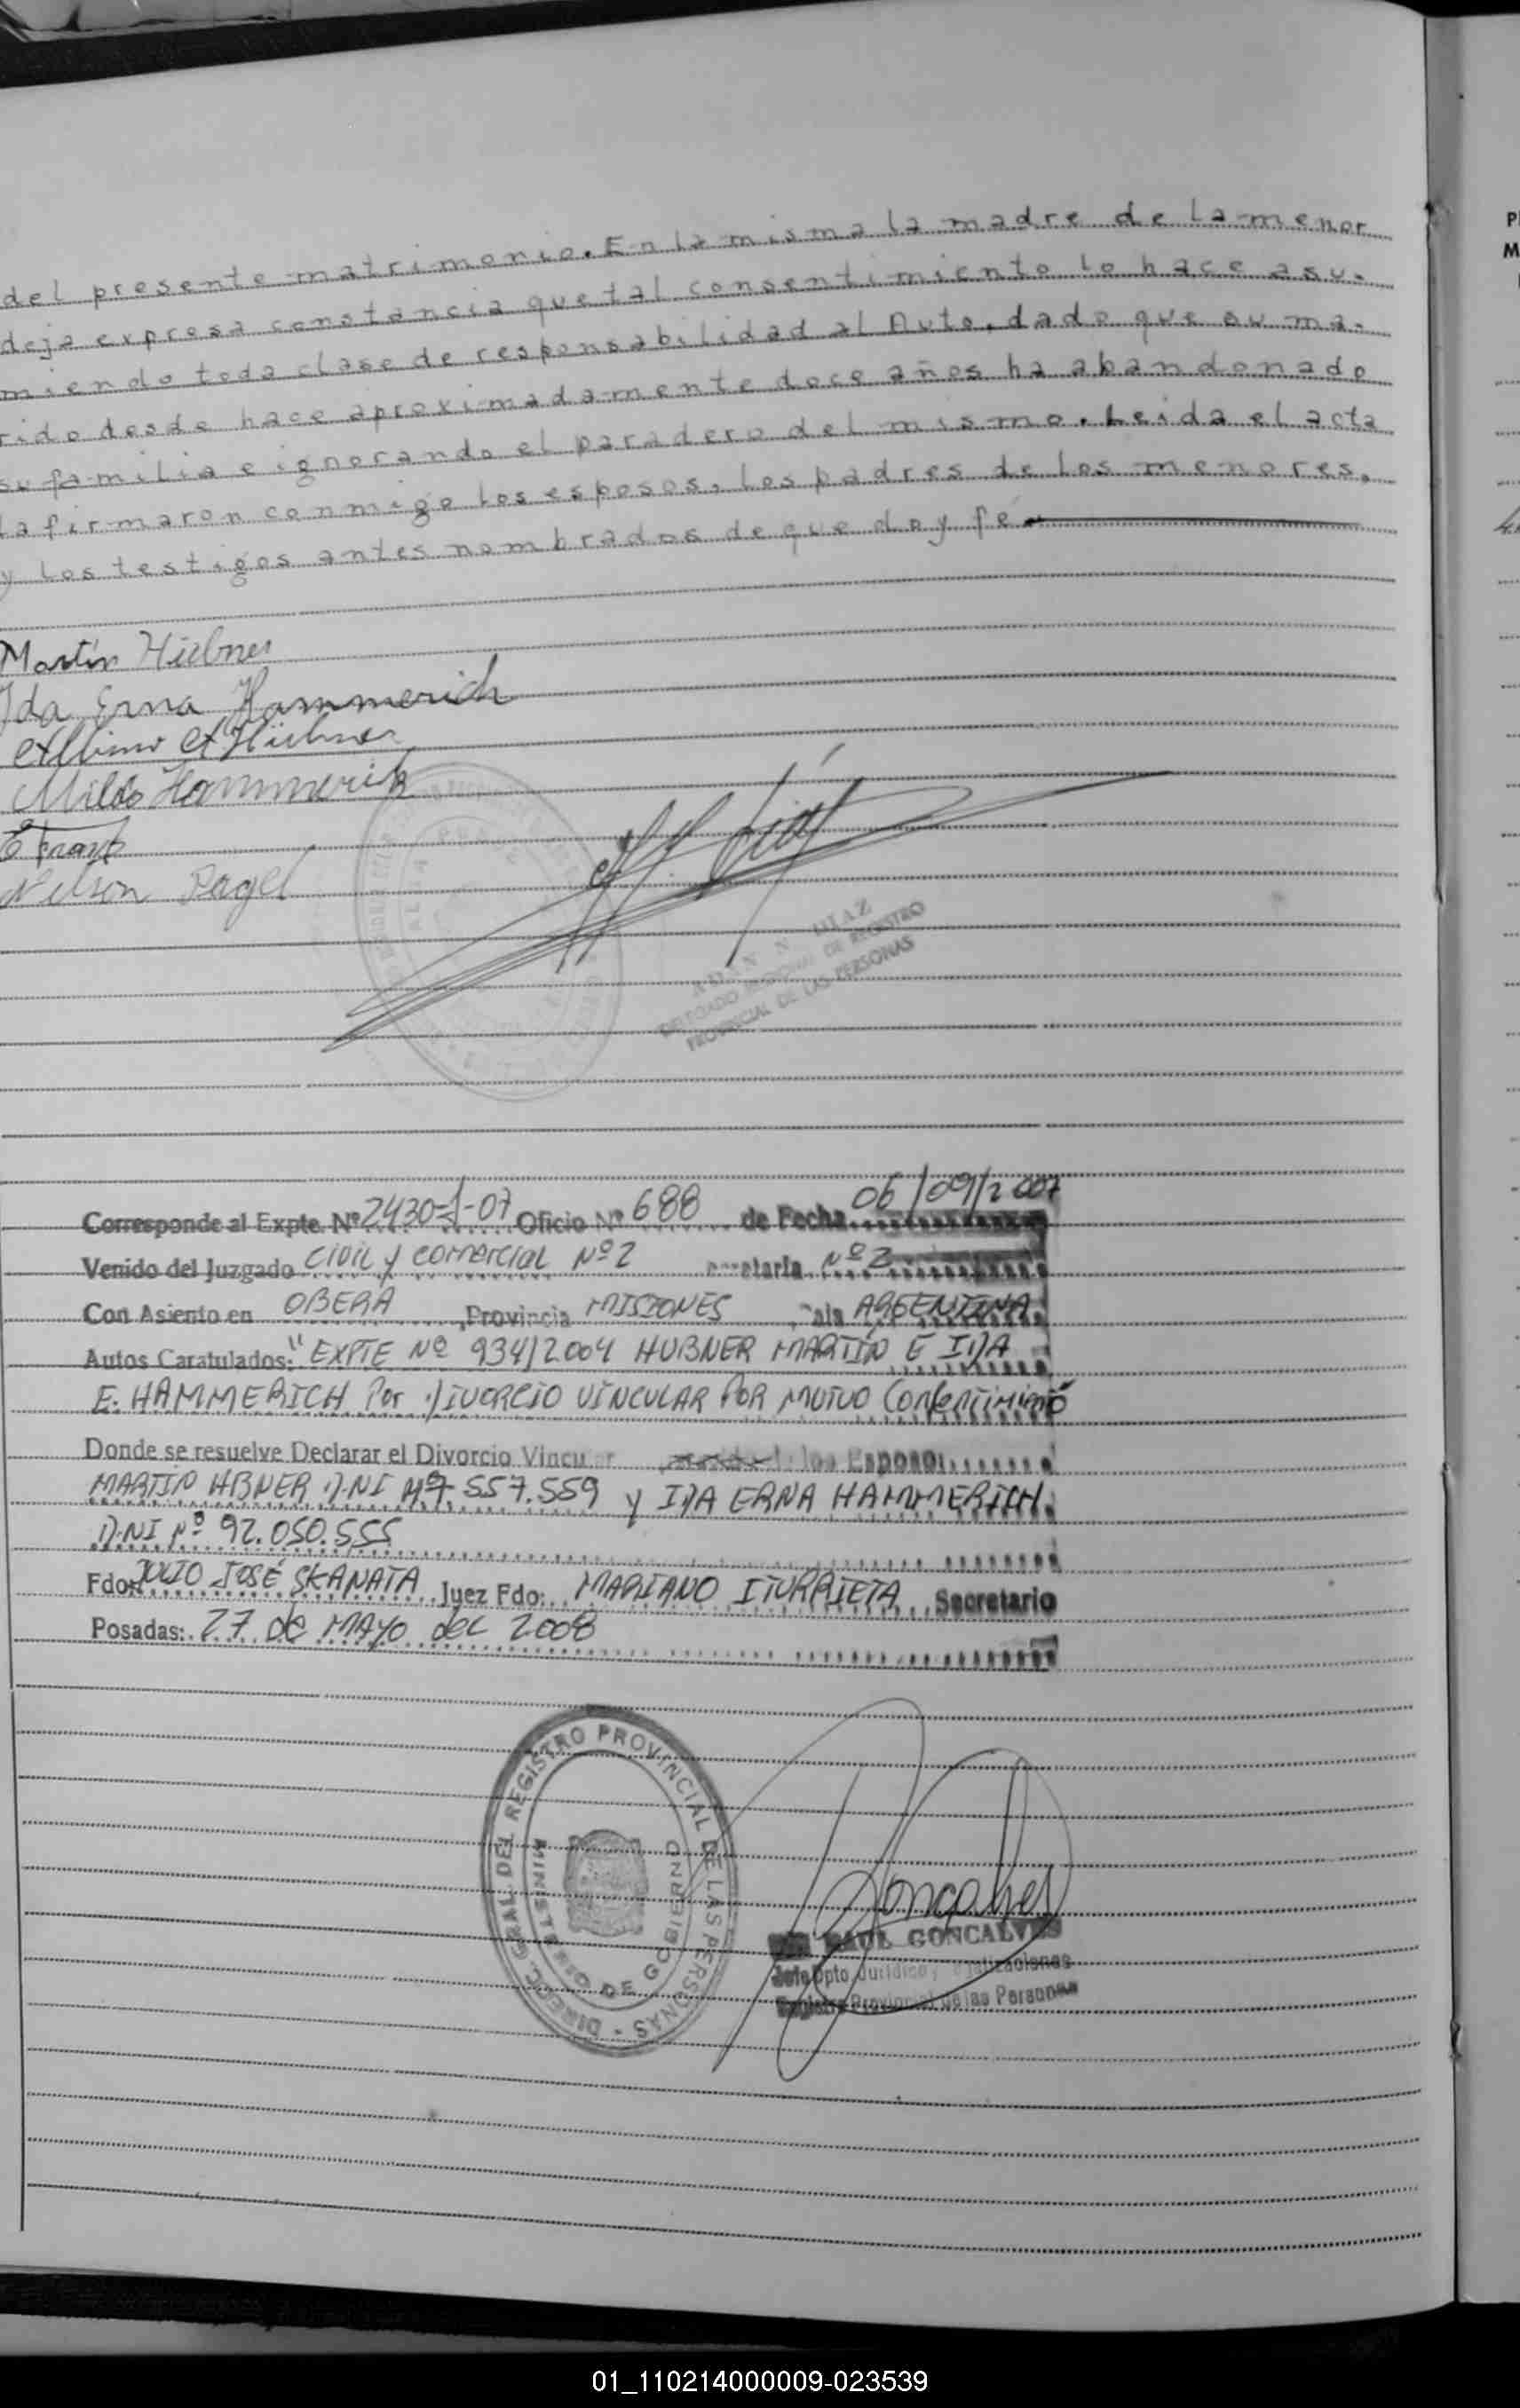 del presente matrimonio. En la misma la madre de la menor
deja expresa constancia que tal consentimiento lo hace asu-
miendo toda clase de responsabilidad al Auto, dado que su ma-
rido desde hace aproximadamente doce años ha abandonado
su familia e ignorando el paradero del mismo. Leida el acta
la firmaron conmigo los esposos, los padres de los menores,
y los testigos antes nombrados de que doy fé
Martín Hübner
Ida Erna Hammerich
Albino A Hübner
Mildo Hammerich
Nelson Pagel
N DIAZ
DELEGADO DE REGISTRO
PROVINCIAL DE LAS PERSONAS
Corresponde al Expte. Nº 2430-J-07 Oficio Nº 688 de Fecha 06/09/2007
Venido del Juzgado CIVIL y COMERCIAL Nº 2 Nº 2
Con Asiento en OBERA, Provincia MISIONES, ARGENTINA
Autos Caratulados: "EXPTE Nº 934/2004 HUBNER MARTIN E IDA
E. HAMMERICH Por DIVORCIO VINCULAR POR MUTUO Consentimiento
Donde se resuelve Declarar el Divorcio Vincular los Esposos
MARTIN HBNER D.NI Nº 7.557.559 y IDA ERNA HAMMERICH.
D.NI Nº 92.050.555
Fdo: JULIO JOSÉ SKANATA Juez Fdo: MARIANO ITURRIETA, Secretario
Posadas: 27 de MAYO del 2008
DIREC. GRAL. DEL REGISTRO PROVINCIAL DE LAS PERSONAS -
MINISTERIO DE GOBIERNO
Goncalves
RAUL GONCALVES
Jefe Dpto. Juridico y
Registro Provincial de las Personas
01_110214000009-023539